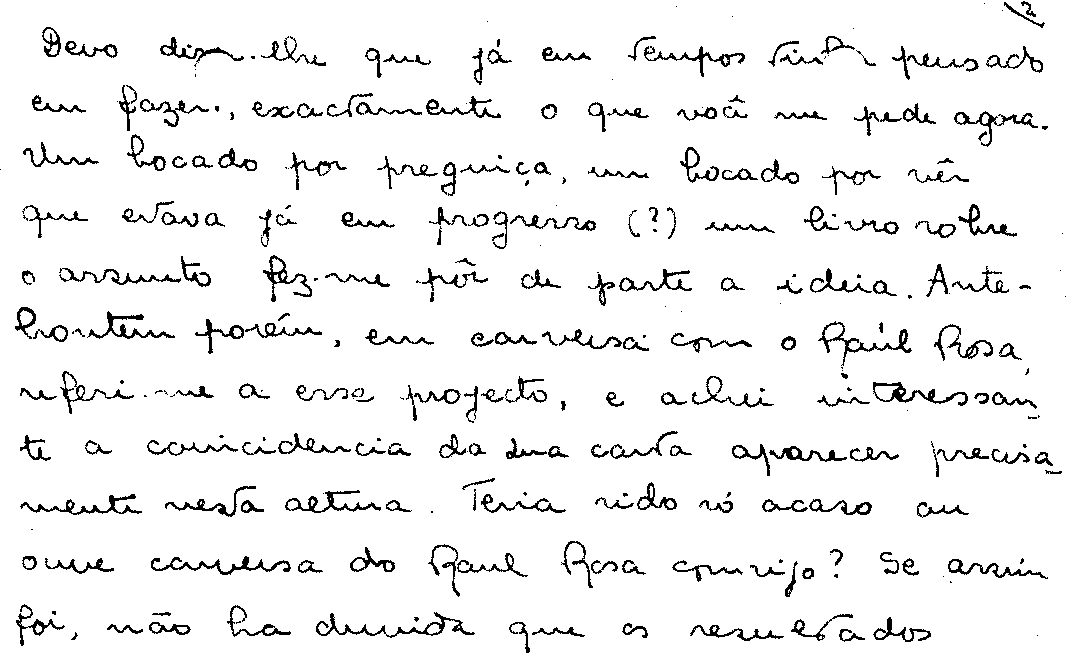 2
Devo dizer-lhe que já em tempos tinha pensado
em fazer, exactamente o que você me pede agora.
Um bocado por preguiça, um bocado por vêr
que estava já em progresso (?) um livro sobre
o assunto fez-me pôr de parte a ideia. Ante-
hontem porém, em conversa com o Raúl Rosa,
referi-me a esse projecto, e achei interessan-
te a coincidencia da sua carta aparecer precisa-
mente nesta altura. Teria sido só acaso ou
ouve conversa do Raul Rosa comsigo? Se assim
foi, não ha duvida que os resultados